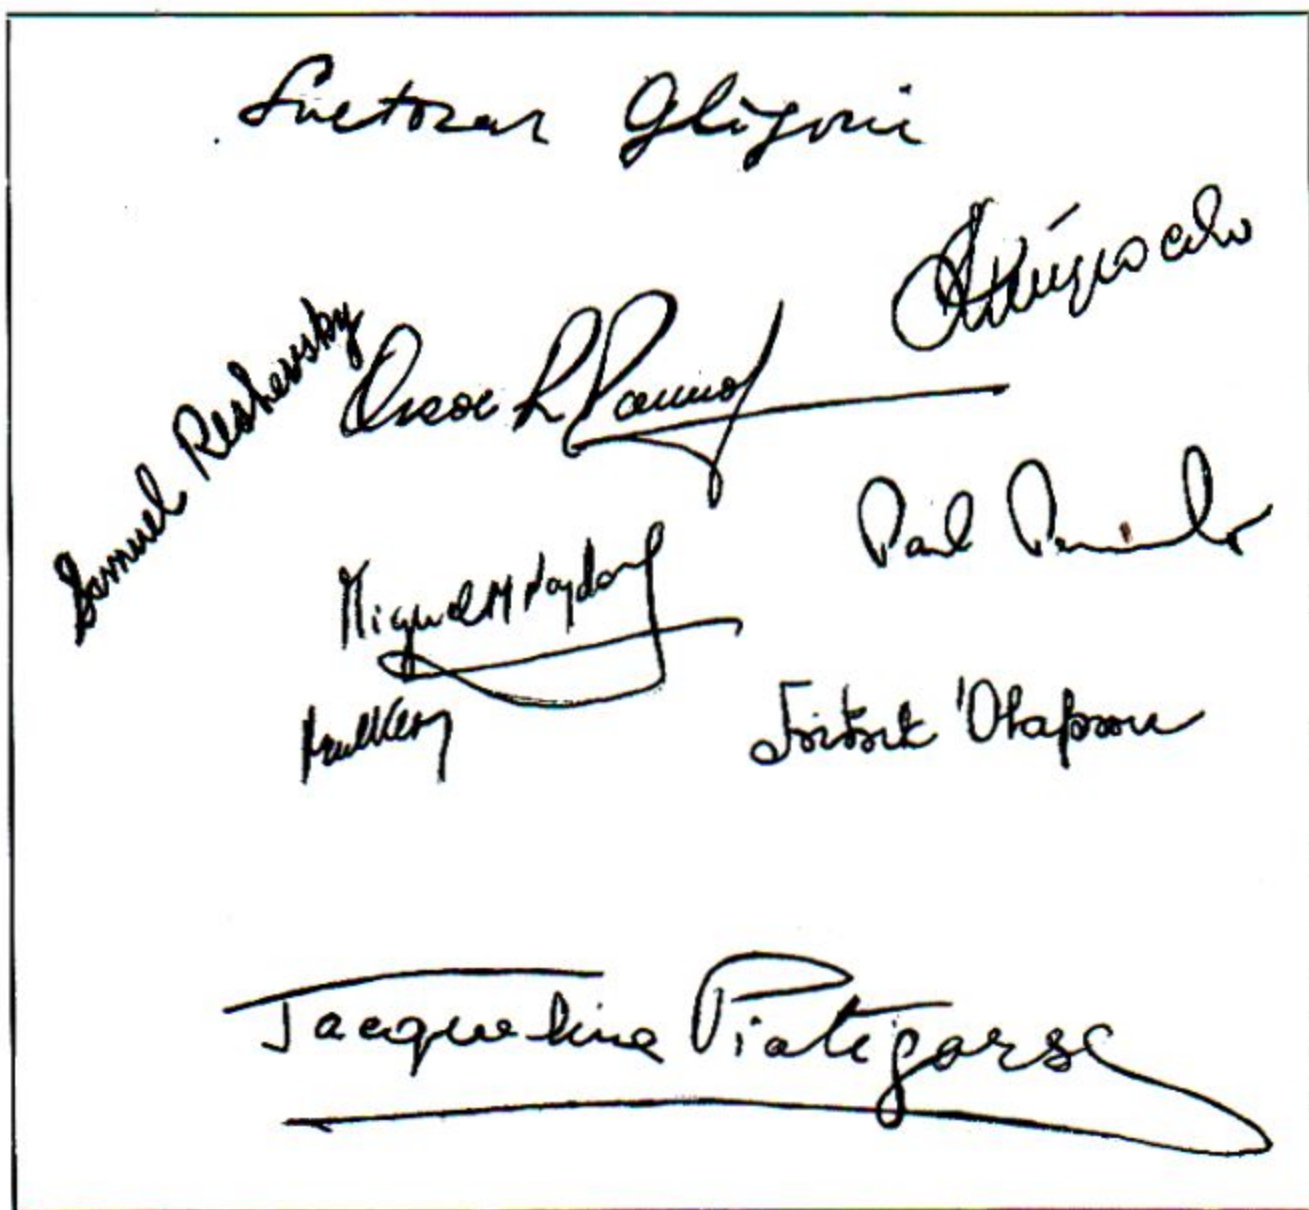 Svetozar Gligorić
Samuel Reshevsky
Oscar R Panno
Miguel M Najdorf
Paul Keres
Fridrik Olafsson
Jacqueline Piatigorsky